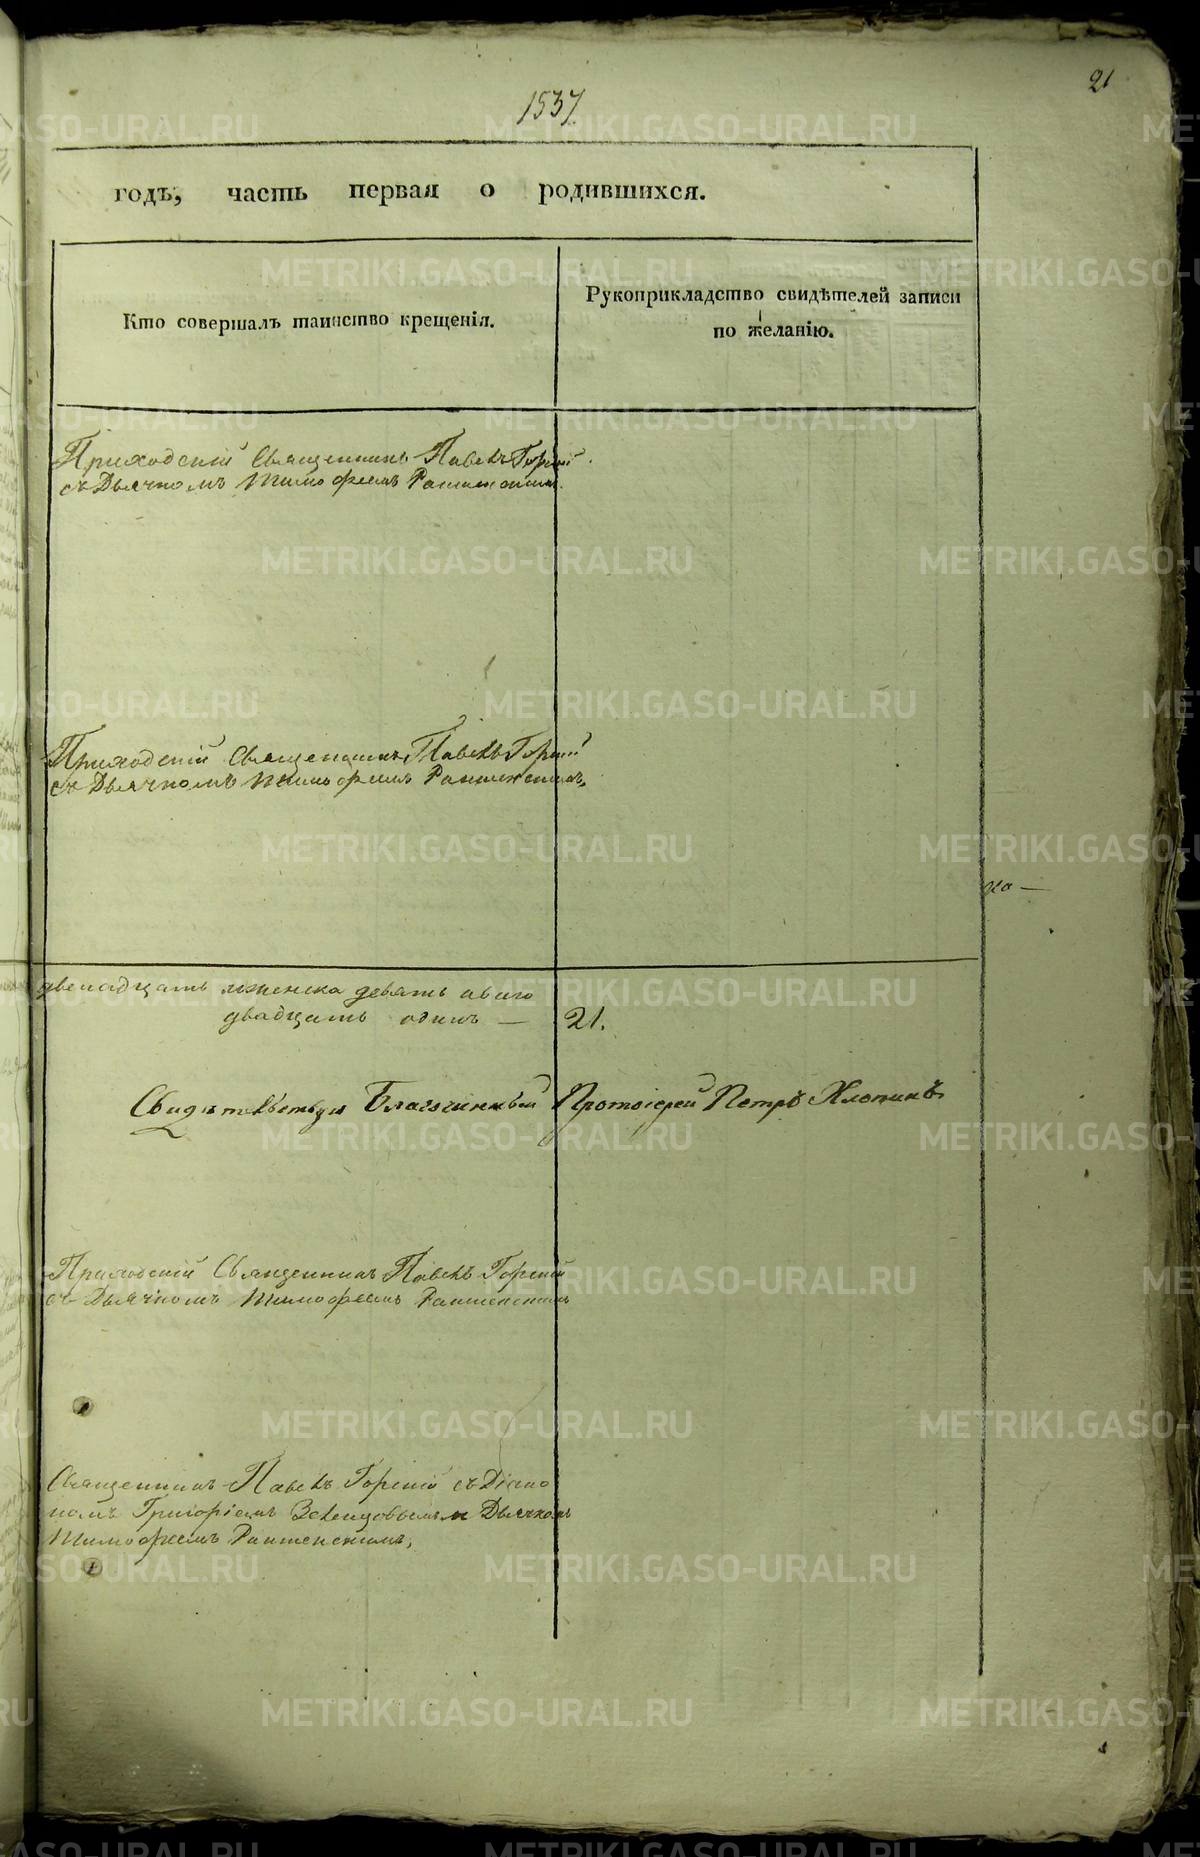 21
1537
годъ, часть первая о родившихся.
Кто совершалъ таинство крещенія.
Рукоприкладство свидѣтелей записи
по желанію.
Приходскій Священникъ Павелъ Горскій
съ Дьячкомъ Тимофеемъ
Приходскій Священникъ Павелъ Горскій
съ Дьячкомъ Тимофеемъ
го —
двенадцать женска девять обоего
двадцать одинъ — 21.
Свидѣтельствуя Благочинный Протоіерей Петръ Хлопинъ
Приходскій Священникъ Павелъ Горскій
съ Дьячкомъ Тимофеемъ
Священникъ Павелъ Горскій съ Діако
номъ Григоріемъ и Дьячкомъ
Тимофеемъ
METRIKI.GASO-URAL.RU